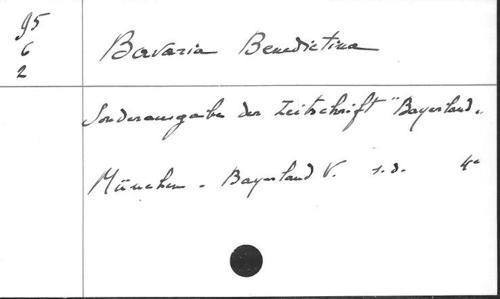 95
6
2
Bavaria Benedictina
Sonderausgabe der Zeitschrift "Bayerland"
München - Bayerland V. s.d. 4°